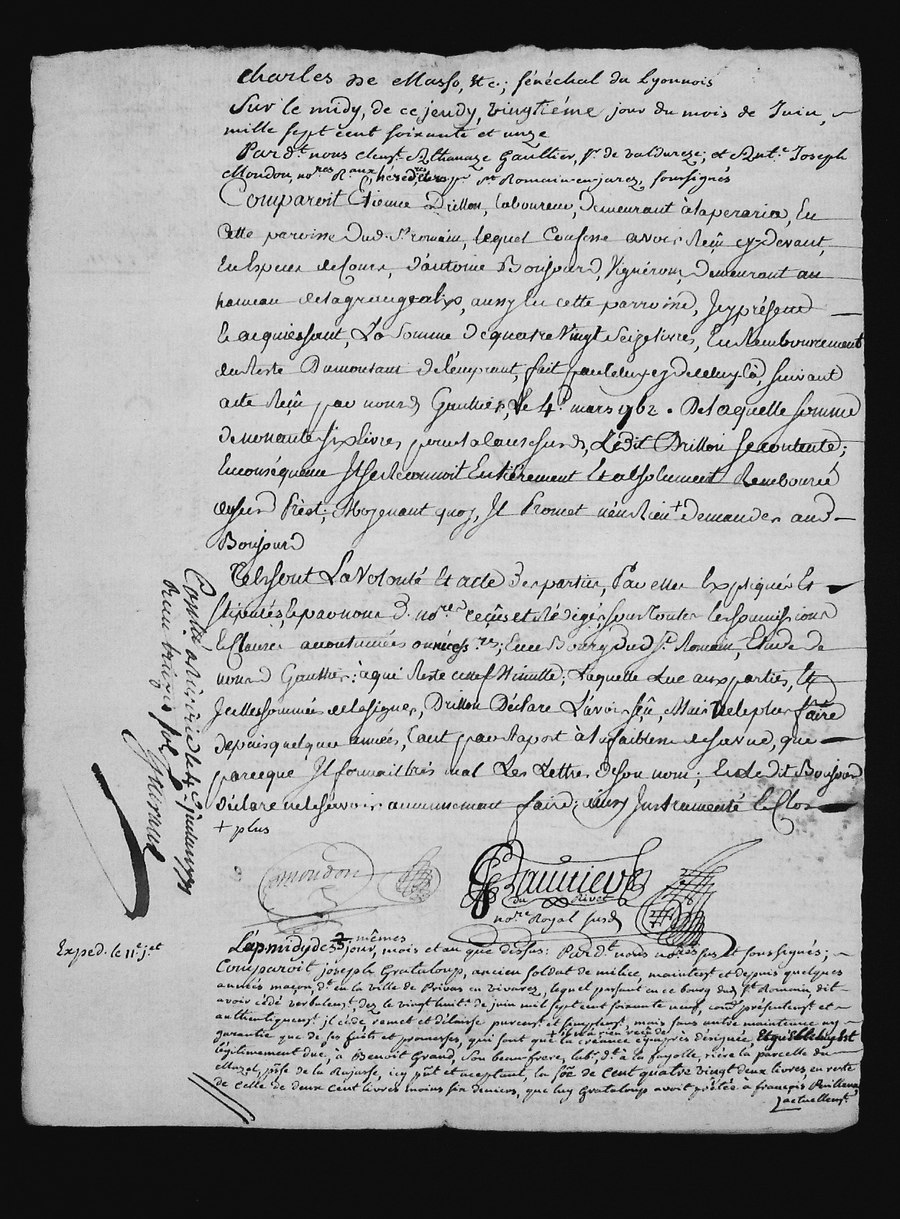 Charles de Masso, &c.; sénéchal du Lyonnois
Sur le midy, de ce jeudy, vingtiéme jour du mois de Juin,
mille sept cent soixante et unze
Pard.t nous Athanaze Gaultier, s.r de valdureze; et Ant.e Joseph
Mondon, no.res R.aux St Romain-en-jarez, soussignés
Comparoit Etienne Drillon, laboureur, demeurant à laperaria, En
cette paroisse dud. St romain, lequel Confesse avoir Reçû cy-devant,
En Especes de Cours, d'antoine Boujourd, Vignéron, demeurant au
hameau aussy En cette parroisse, Icy présent
Et acquiessant, La Somme de quatre Vingt Seize livres, En Remboursement
du Reste Du montant de l'emprunt, fait par celuy cy de celuy là, suivant
acte Reçû par nousd. Gaultier, le 4.e mars 1762. De laquelle somme
de nonante six livres, pour la cause susd, Ledit Drillon se contente;
En conséquence Il se Reconnoit Entiérement Et absolument Remboursé
dususd. Prêt; Moyenant quoy, Il Promet n'en Rien + demander aud.
Boujourd
Telle sont La Volonté Et acte des parties, Par elles Expliqués Et
stipulés, Et par nous d. no.res reçûs et rédigés, sous toutes les soumissions
Et Clauses accoutumées Ence Bourg dud. St. Romain, Etude de
nousd Gaultier: à qui Reste cette Minutte; Laquelle Lue aux parties, Et
Icelles sommées de la signer, Drillon Déclare L'avoir sçû, Mais ne le plus faire
depuis quelques années, tant par raport à la foiblesse de sa vue, que
parceque Il formait trés mal Les Lettres de son nom; Et le dit Boujourd
Déclare ne le sçavoir aucunement faire; ainsy Instrumenté & Clos
+ plus
Mondon
Gaultier
du Rivet
no.re Royal susd
Controllé à 1771
Reçu sols
Exped. le 11.e j.et
L'apmidy de ces mêmes jour, mois et an que dessus: Pard.t nous no.res sus et soussignés;
Comparoit joseph Grataloup, ancien soldat de milice, maintent et depuis quelques
années maçon, d.t en la ville de Privas en vivarez, lequel passant en ce bourg dud. St Romain, dit
avoir cédé verbalem.t, dez le vingt huit.e de juin mil sept cent soixante neuf, présentem.t et
authentiquem.t il céde remet et délaisse purem.t et simplem.t, mais sans autre maintenue ny
garantie que de ses faits et promesses, qui sont que la créance cyaprès désignée,
légitimement due, à Benoit Grand, son beaufrere, lab.r d.t à la fayolle, riére la parcelle du
Mazel, p.sse de la Rajasse, icy pñt et aceptant, la soe de cent quatre vingt deux livres, en reste
de celle de deux cent livres moins six deniers, que luy Grataloup avoit prêtés à françois
Lactuellem.t